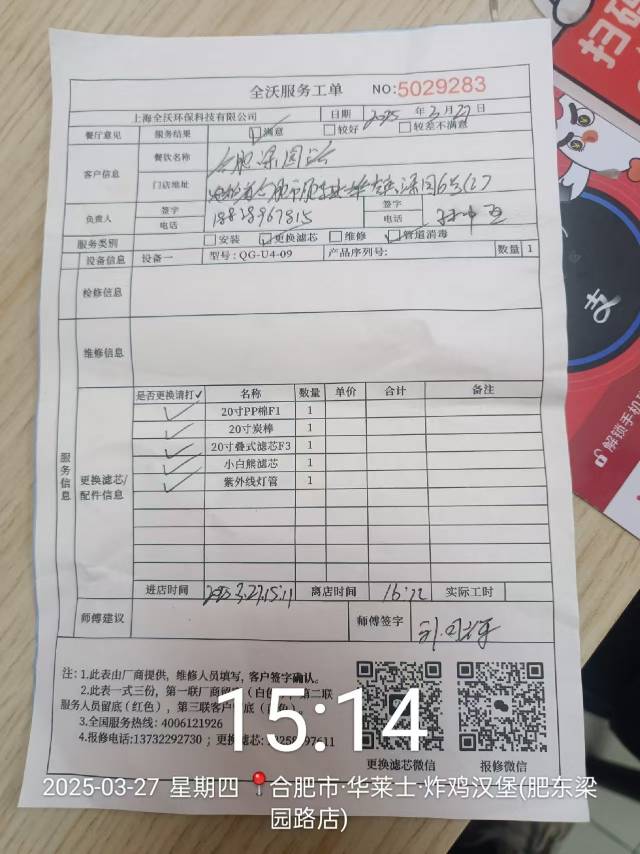 扫码
全沃服务工单 NO:5029283
上海全沃环保科技有限公司 日期 2025 年 3 月 27 日
餐厅意见 服务结果 满意 较好 较差不满意
客户信息 餐饮名称 合肥梁园路
门店地址
负责人 签字 电话 签字 电话
服务类别 安装 更换滤芯 维修 管道消毒
设备信息 设备一 型号:QG-U4-09 产品序列号: 数量 1
检修信息
维修信息
服务信息
更换滤芯/配件信息
是否更换请打✓ 名称 数量 单价 合计 备注
✓ 20寸PP棉F1 1
✓ 20寸炭棒 1
✓ 20寸叠式滤芯F3 1
✓ 小白熊滤芯 1
✓ 紫外线灯管 1
进店时间 2025.3.27.15:11 离店时间 16:12 实际工时
师傅建议 师傅签字
注: 1.此表由厂商提供, 维修人员填写, 客户签字确认。
2.此表一式三份, 第一联厂商留底(白色), 第二联
服务人员留底(红色), 第三联客户留底
3.全国服务热线: 4006121926
4.报修电话:13732292730 ; 更换滤芯:
更换滤芯微信 报修微信
支
解锁手机
15:14
2025-03-27 星期四 合肥市·华莱士·炸鸡汉堡(肥东梁
园路店)